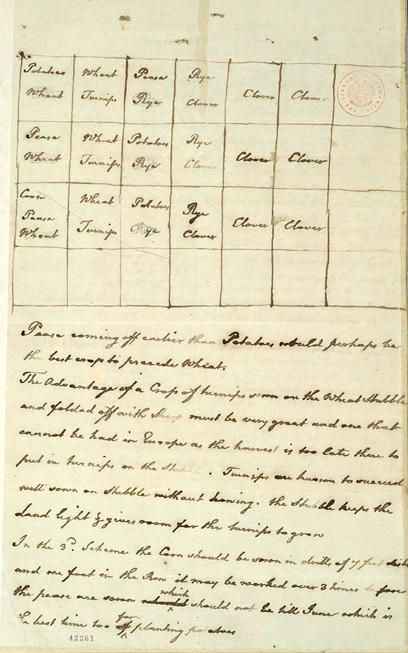 Potatoes Wheat Pease Rye
Wheat Turnips Rye Clover Clover Clover
Pease Wheat Potatoes Rye
Wheat Turnips Rye Clover Clover Clover
Corn Wheat Potatoes Rye
Pease
Wheat Turnips Rye Clover Clover Clover
Pease coming off earlier than Potatoes would perhaps be
the best crop to precede Wheat.
The Advantage of a Crop of turnips sown on the Wheat Stubble
and folded off with Sheep must be very great and one that
cannot be had in Europe as the harvest is too late there to
put in turnips on the . Turnips are known to succeed
well sown on stubble without hoeing. the Stubble keeps the
land light & gives room for the turnips to grow
In the 3d. Scheme the Corn should be sown in drills of 7 feet
and one foot in the Row it may be worked over 3 times before
the pease are sown which should not be till June which is
best time too for planting potatoes
42261